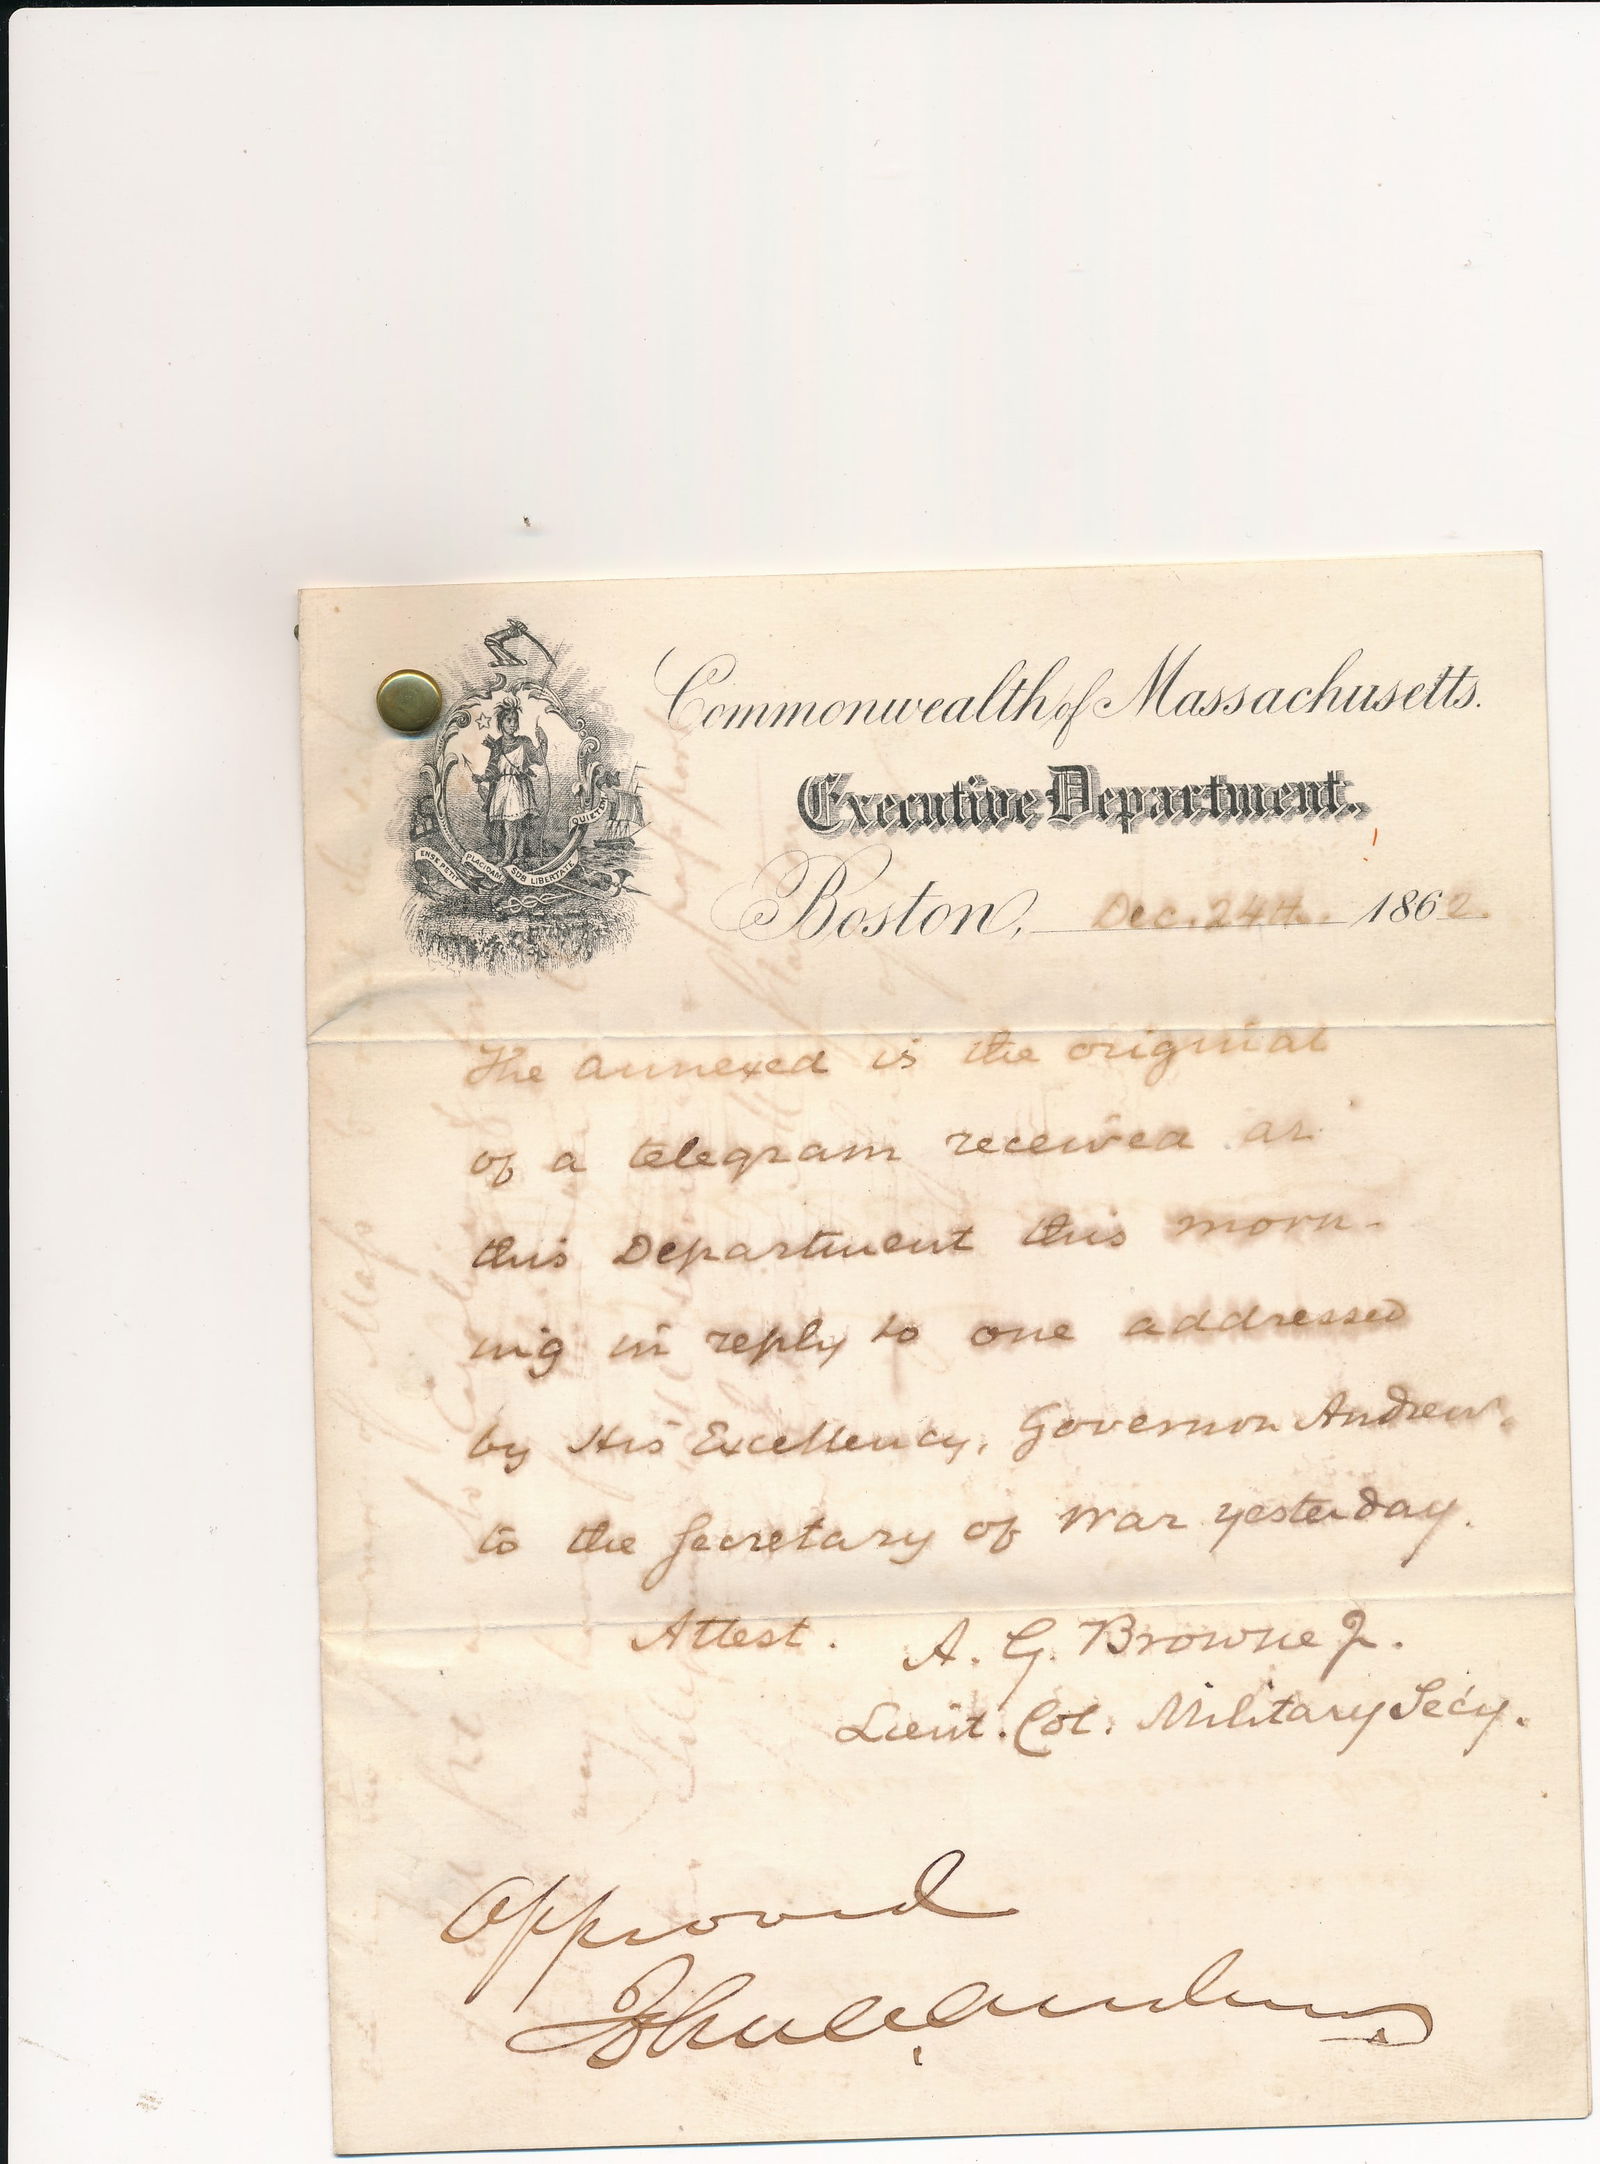 Commonwealth of Massachusetts.
Executive Department.
Boston, Dec. 24th. 1862.
ENSE PETIT PLACIDAM SUB LIBERTATE QUIETEM
The annexed is the original
of a telegram received at
this Department this morn-
ing in reply to one addressed
by His Excellency, Governor Andrew,
to the Secretary of War yesterday.
Attest. A. G. Browne Jr.
Lieut. Col. Military Sec'y.
Approved
John A Andrew